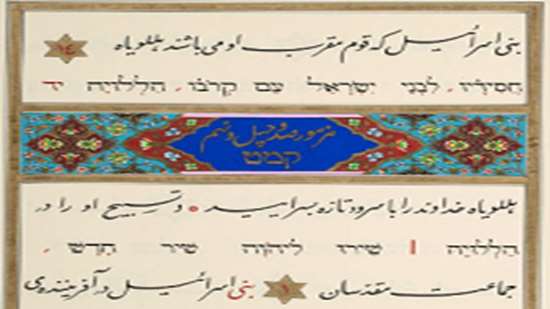 بنی اسرائیل که قوم مقرب او می باشند هللویاه ۱۴
חסידיו. לבני ישראל עם קרבו. הללויה יד
مزمور صد و چهل و نهم
קמט
هللویاه خداوند را با سرود تازه بسرایید و تسبیح او را در
הללויה א שירו ליהוה שיר חדש.
جماعت مقدسان ۱ بنی اسرائیل در آفریننده‌ی